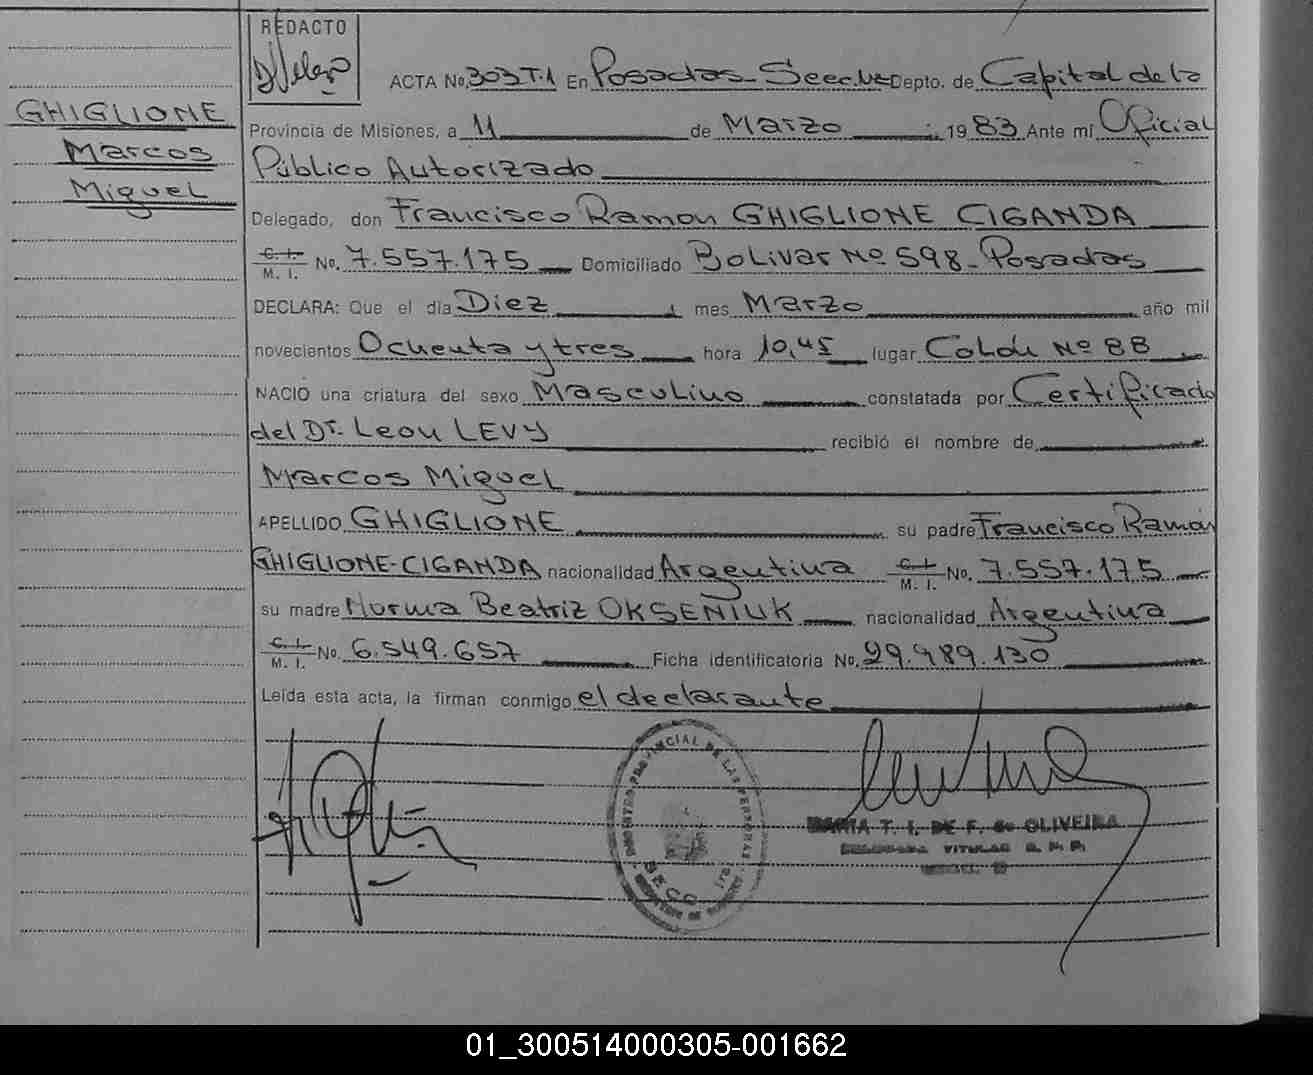 REDACTO
ACTA No. 303 T.1 En Posadas - Secc. Depto. de Capital de la
GHIGLIONE
Marcos
Miguel
Provincia de Misiones, a 11 de Marzo 1983 Ante mí Oficial
Público Autorizado
Delegado, don Francisco Ramon GHIGLIONE CIGANDA
C. I.
M. I. No. 7.557.175 Domiciliado Bolivar Nº 598 - Posadas
DECLARA: Que el día Diez mes Marzo año mil
novecientos Ochenta y tres hora 10,45 lugar Colón Nº 88
NACIO una criatura del sexo Masculino constatada por Certificado
del Dr. Leon LEVY recibió el nombre de
Marcos Miguel
APELLIDO GHIGLIONE su padre Francisco Ramón
GHIGLIONE-CIGANDA nacionalidad Argentina C. I. M. I. No. 7.557.175
su madre Norma Beatriz OKSENIUK nacionalidad Argentina
C. I.
M. I. No. 6.549.657 Ficha identificatoria No. 29.989.130
Leída esta acta, la firman conmigo el declarante
PROVINCIAL DE LAS PERSONAS
SECC
MARIA T. I. DE F. de OLIVEIRA
DELEGADA TITULAR R. P. P.
01_300514000305-001662